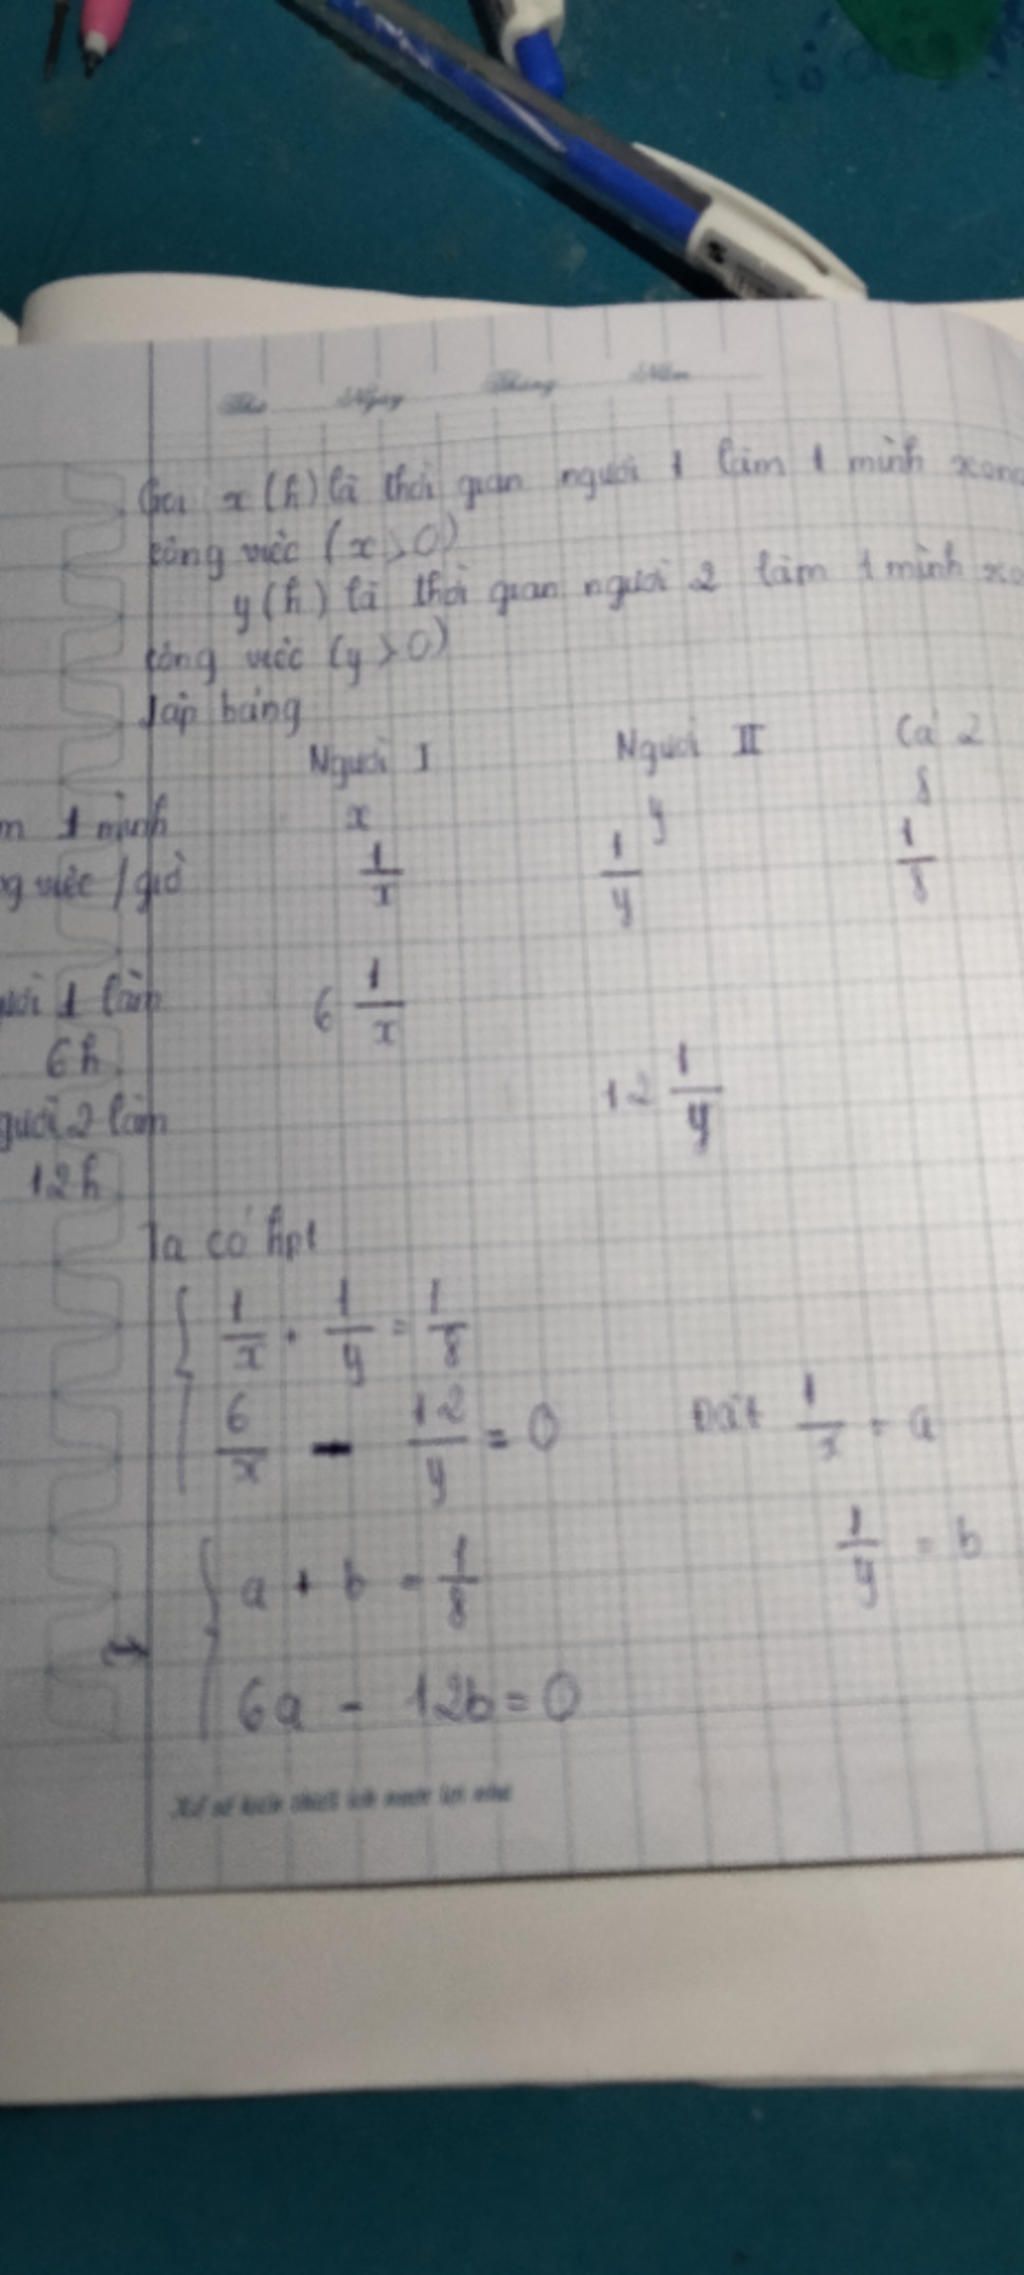 Thứ Ngày Tháng Năm
Gọi x (h) là thời gian người 1 làm 1 mình xong
công việc (x > 0)
y (h) là thời gian người 2 làm 1 mình xo
công việc (y > 0)
Lập bảng
Người I Người II Cả 2
m 1 mình x y 8
g việc / giờ 1/x 1/y 1/8
ười 1 làm 6 1/x
6h
gười 2 làm 12 1/y
12h
Ta có hpt
{ 1/x + 1/y = 1/8
6/x - 12/y = 0 Đặt 1/x = a
1/y = b
{ a + b = 1/8
6a - 12b = 0
Xổ số kiến thiết ích nước lợi nhà